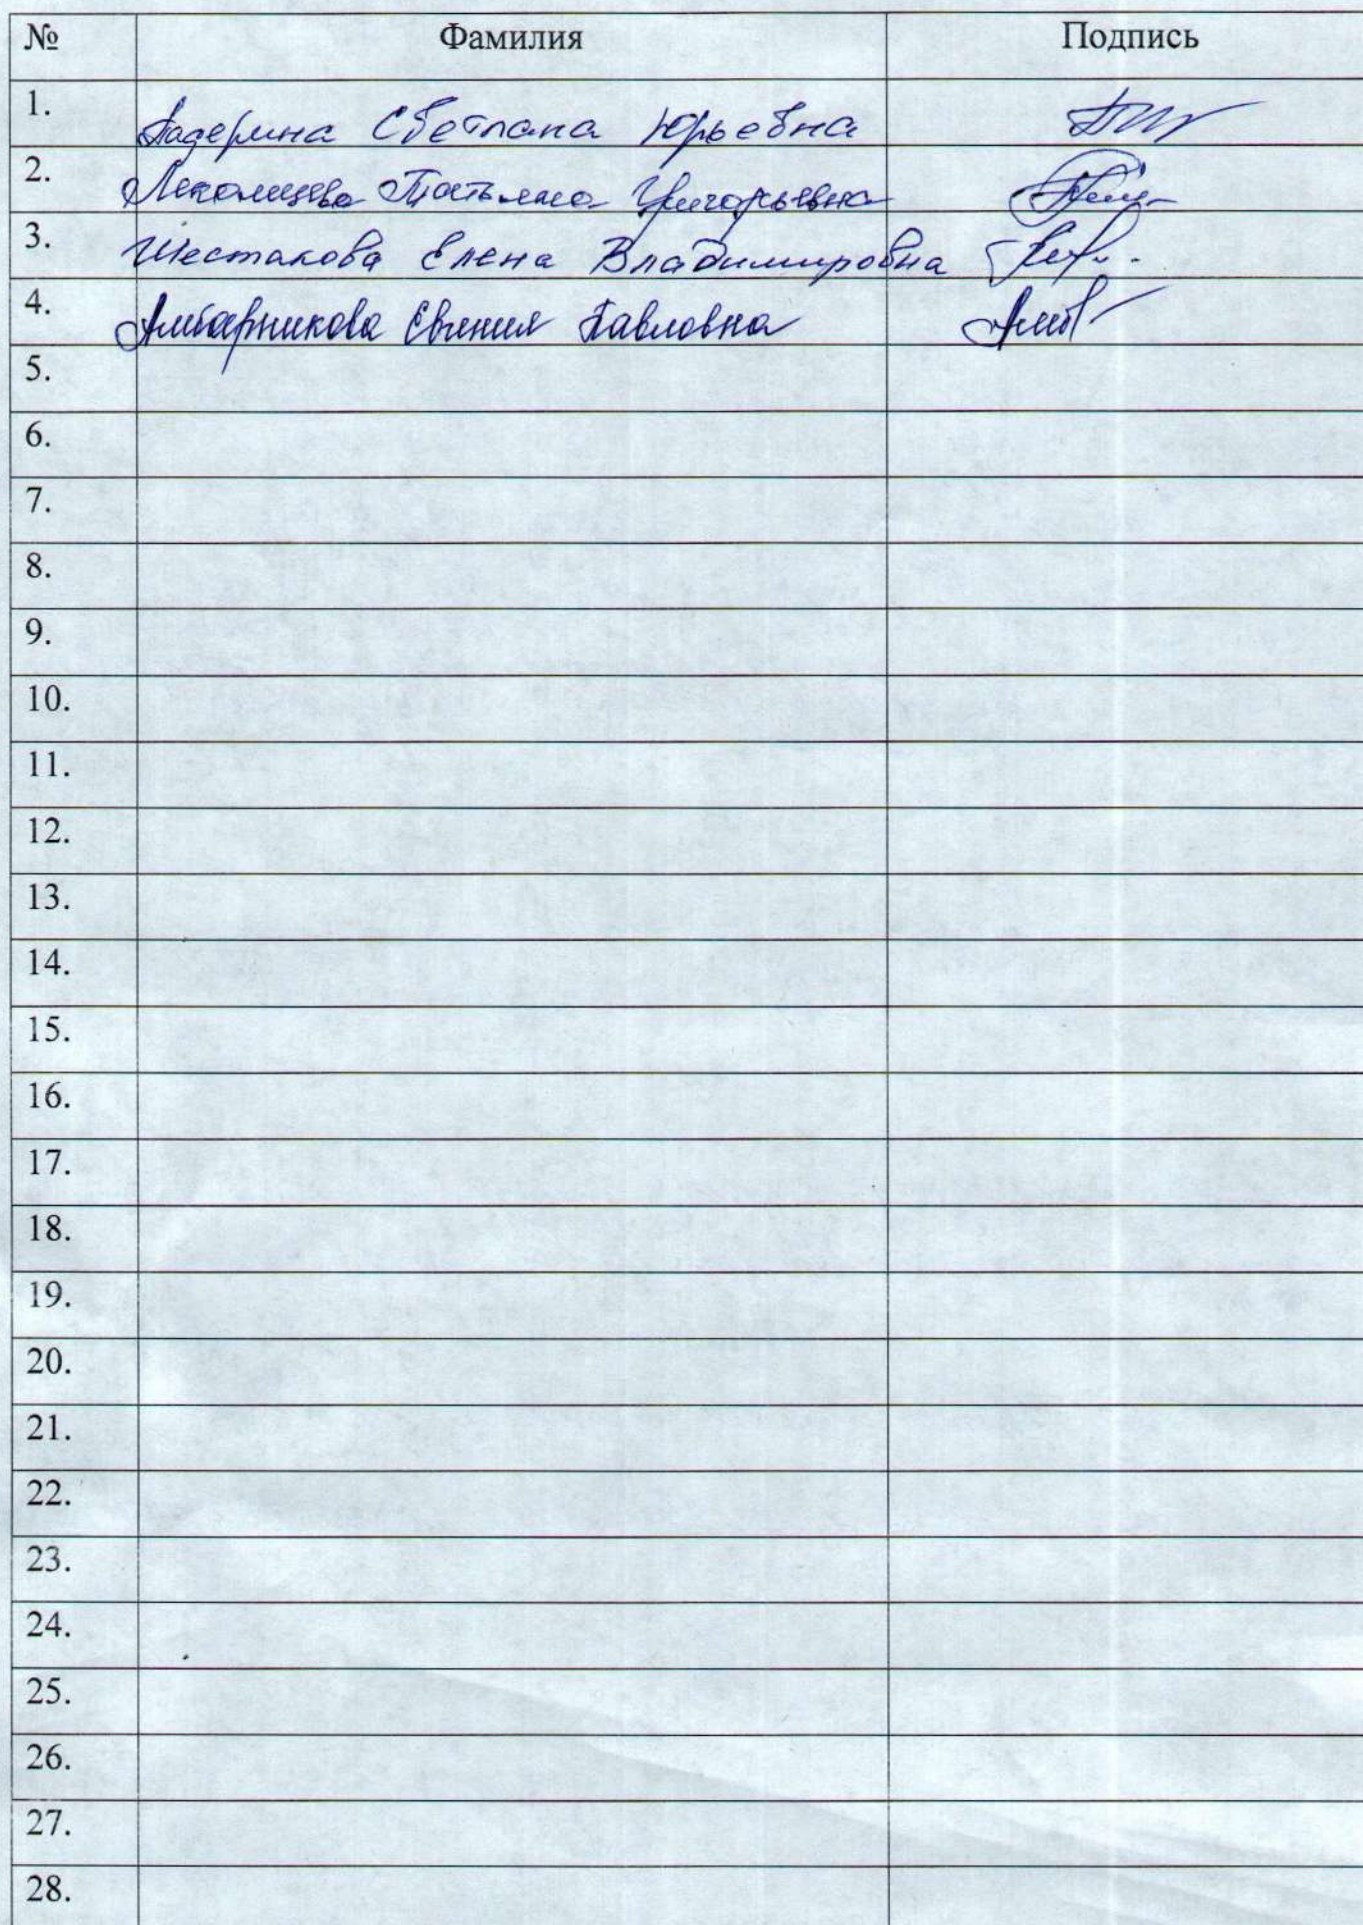 № Фамилия Подпись
1. Падерина Светлана Юрьевна
2. Татьяна Григорьевна
3. Шестакова Елена Владимировна
4. Амбарникова Евгения Павловна
5.
6.
7.
8.
9.
10.
11.
12.
13.
14.
15.
16.
17.
18.
19.
20.
21.
22.
23.
24.
25.
26.
27.
28.